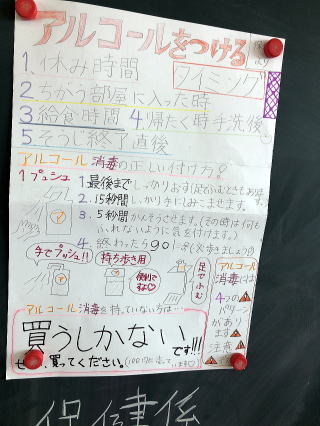 アルコールをつける
タイミング
1.休み時間
2ちがう部屋に入った時
3給食時間 4帰たく時手洗後
5そうじ終了直後
アルコール消毒の正しい付け方
1プッシュ
1.最後までしっかりおす
2.15秒間しっかり手にしみこませます。
3.5秒間かんそうさせます。(その時は何も
ふれないように気を付けます。)
4.終わったらgo!
手でプッシュ!!
持ち歩き用
便利ですね
足でふむ
ア
アルコール
消毒には
4つの
パターン
があり
ます
注意
アルコール消毒を持っていない方は…
買うしかない
です!!!
買ってください。
保健係